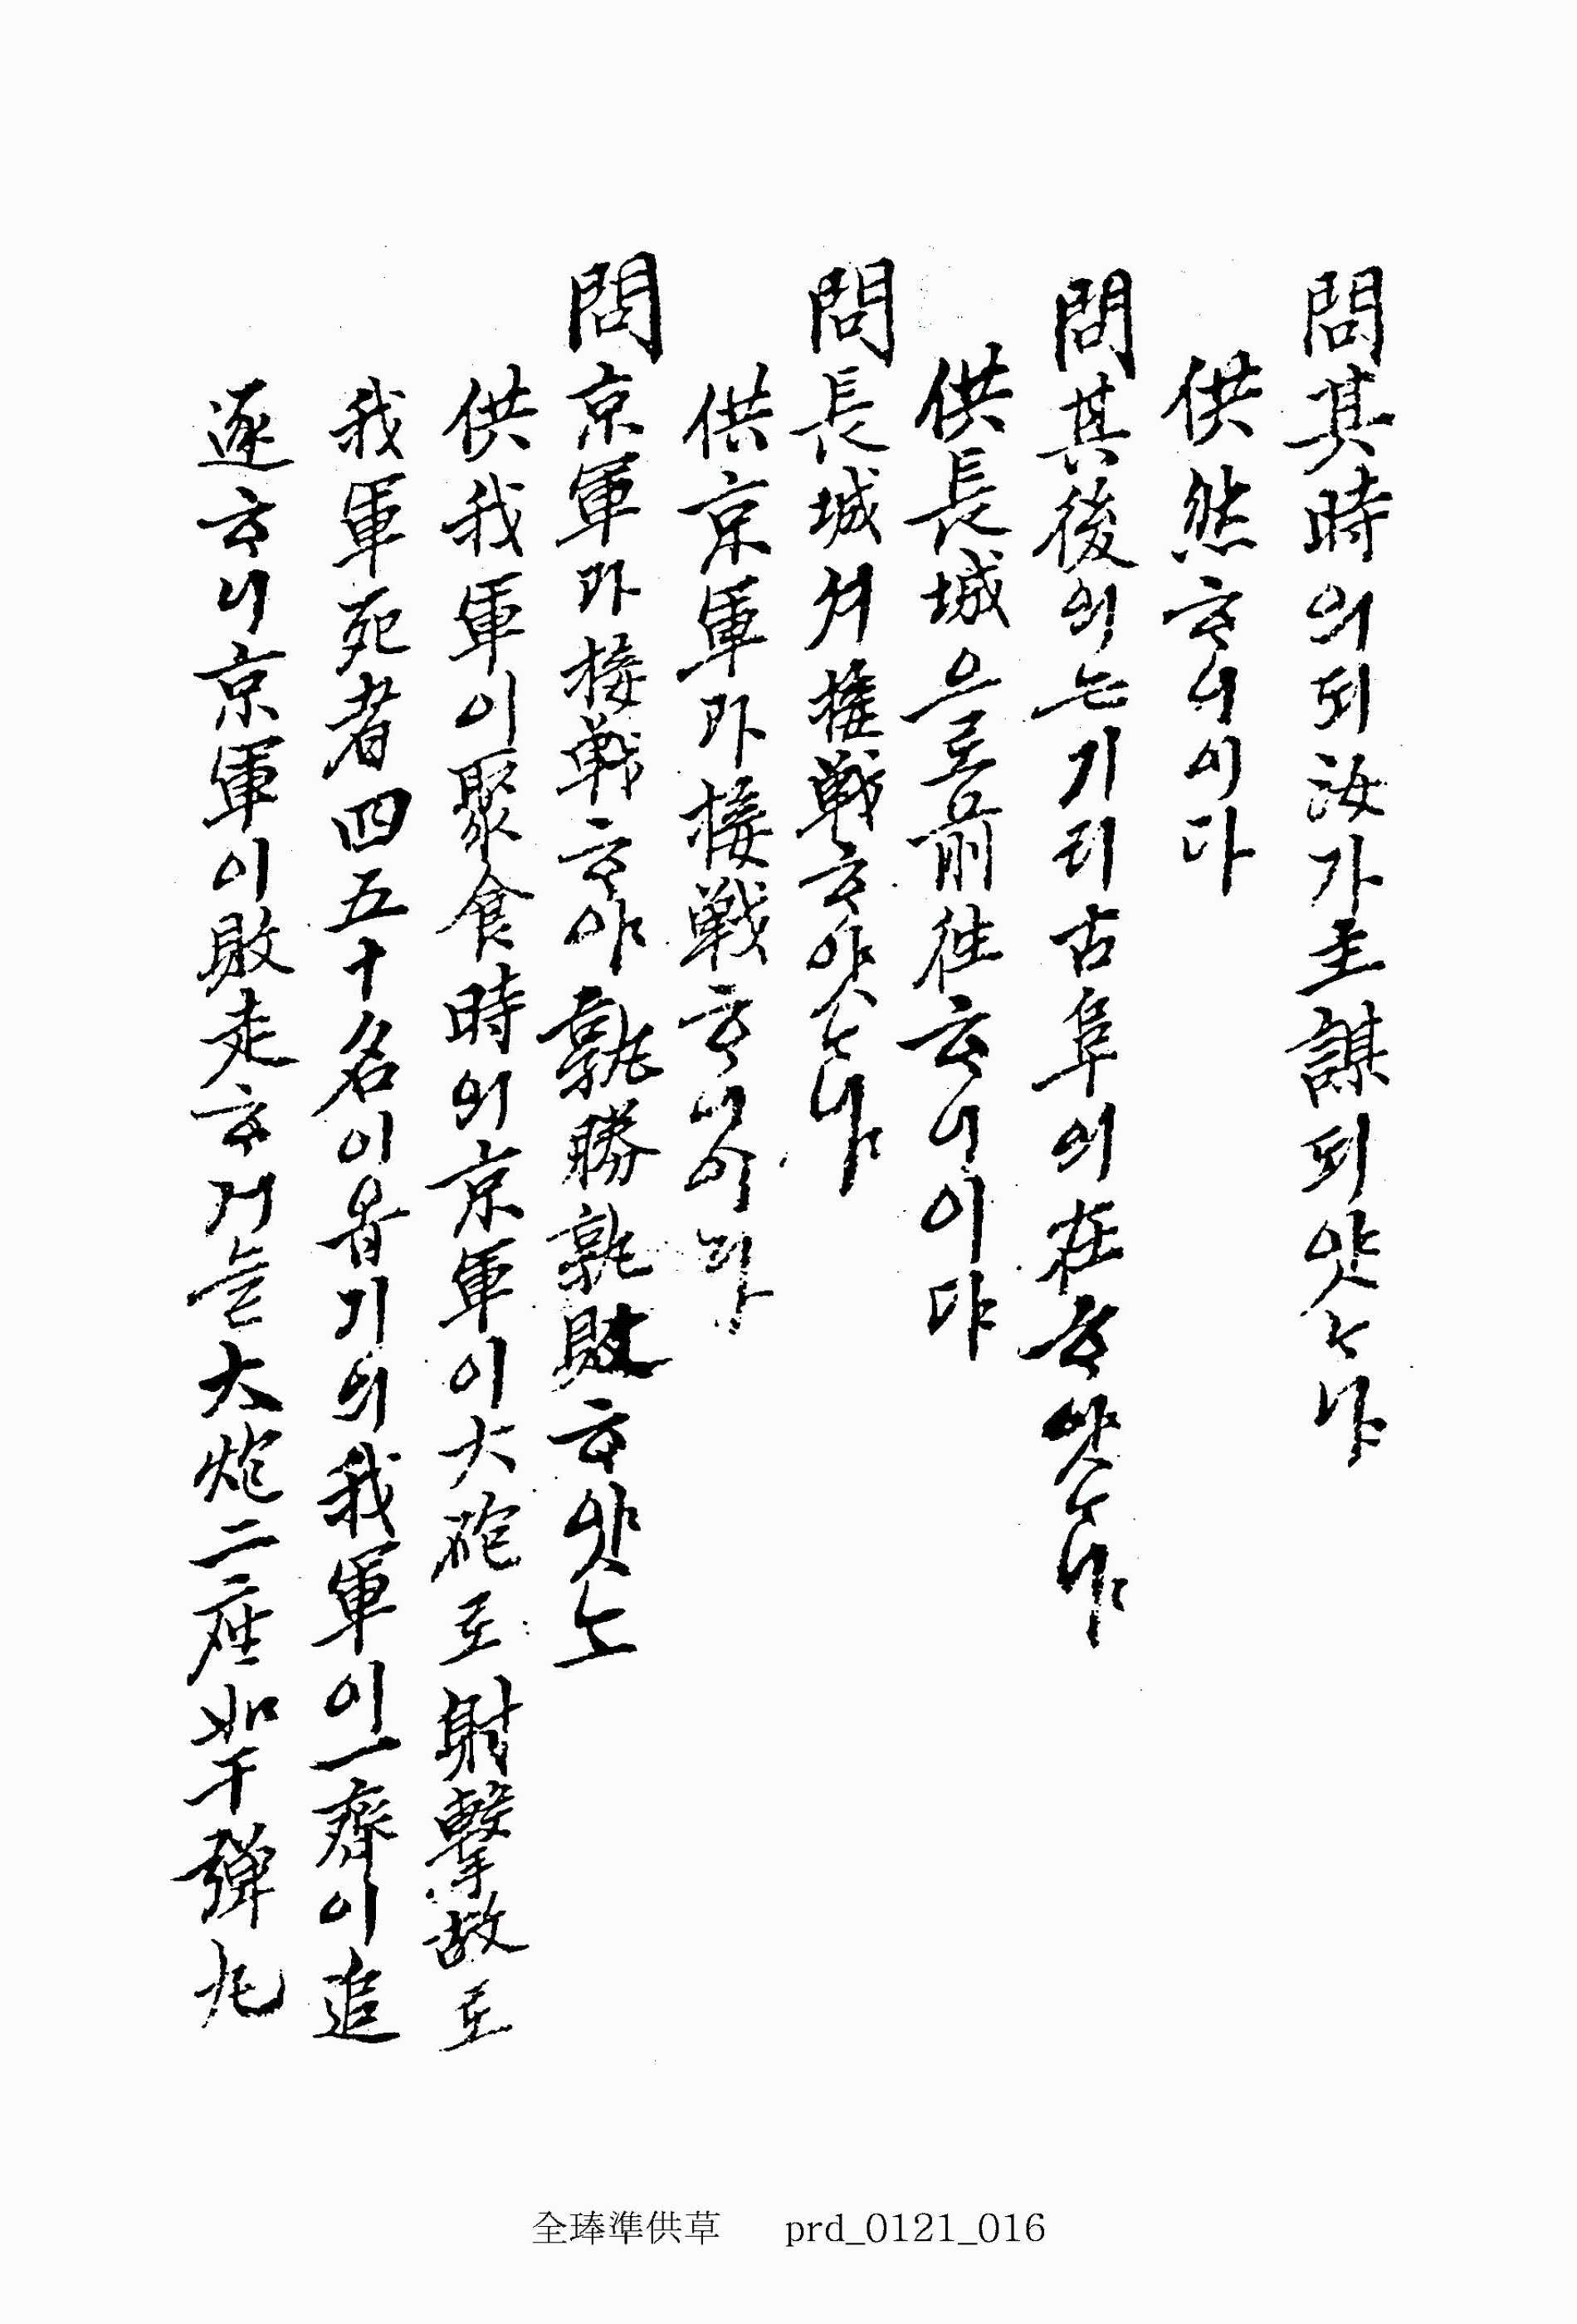 問其時의되汝가主謀되얏ᄂᆞ냐
供然ᄒᆞ니이다
問其後의ᄂᆞᆫ기리古阜에在ᄒᆞ얏ᄂᆞ냐
供長城으로前往ᄒᆞ니이다
問長城셔接戰ᄒᆞ얏ᄂᆞ냐
供京軍과接戰ᄒᆞ니이다
問京軍과接戰ᄒᆞ야孰勝孰敗ᄒᆞ얏ᄂᆞ
供我軍이聚食時의京軍이大砲로射擊故로
我軍死者四五十名이有기의我軍이一齊이追
逐ᄒᆞ니京軍이敗走ᄒᆞ거ᄂᆞᆯ大炮二座如干彈丸
全琫準供草 prd_0121_016